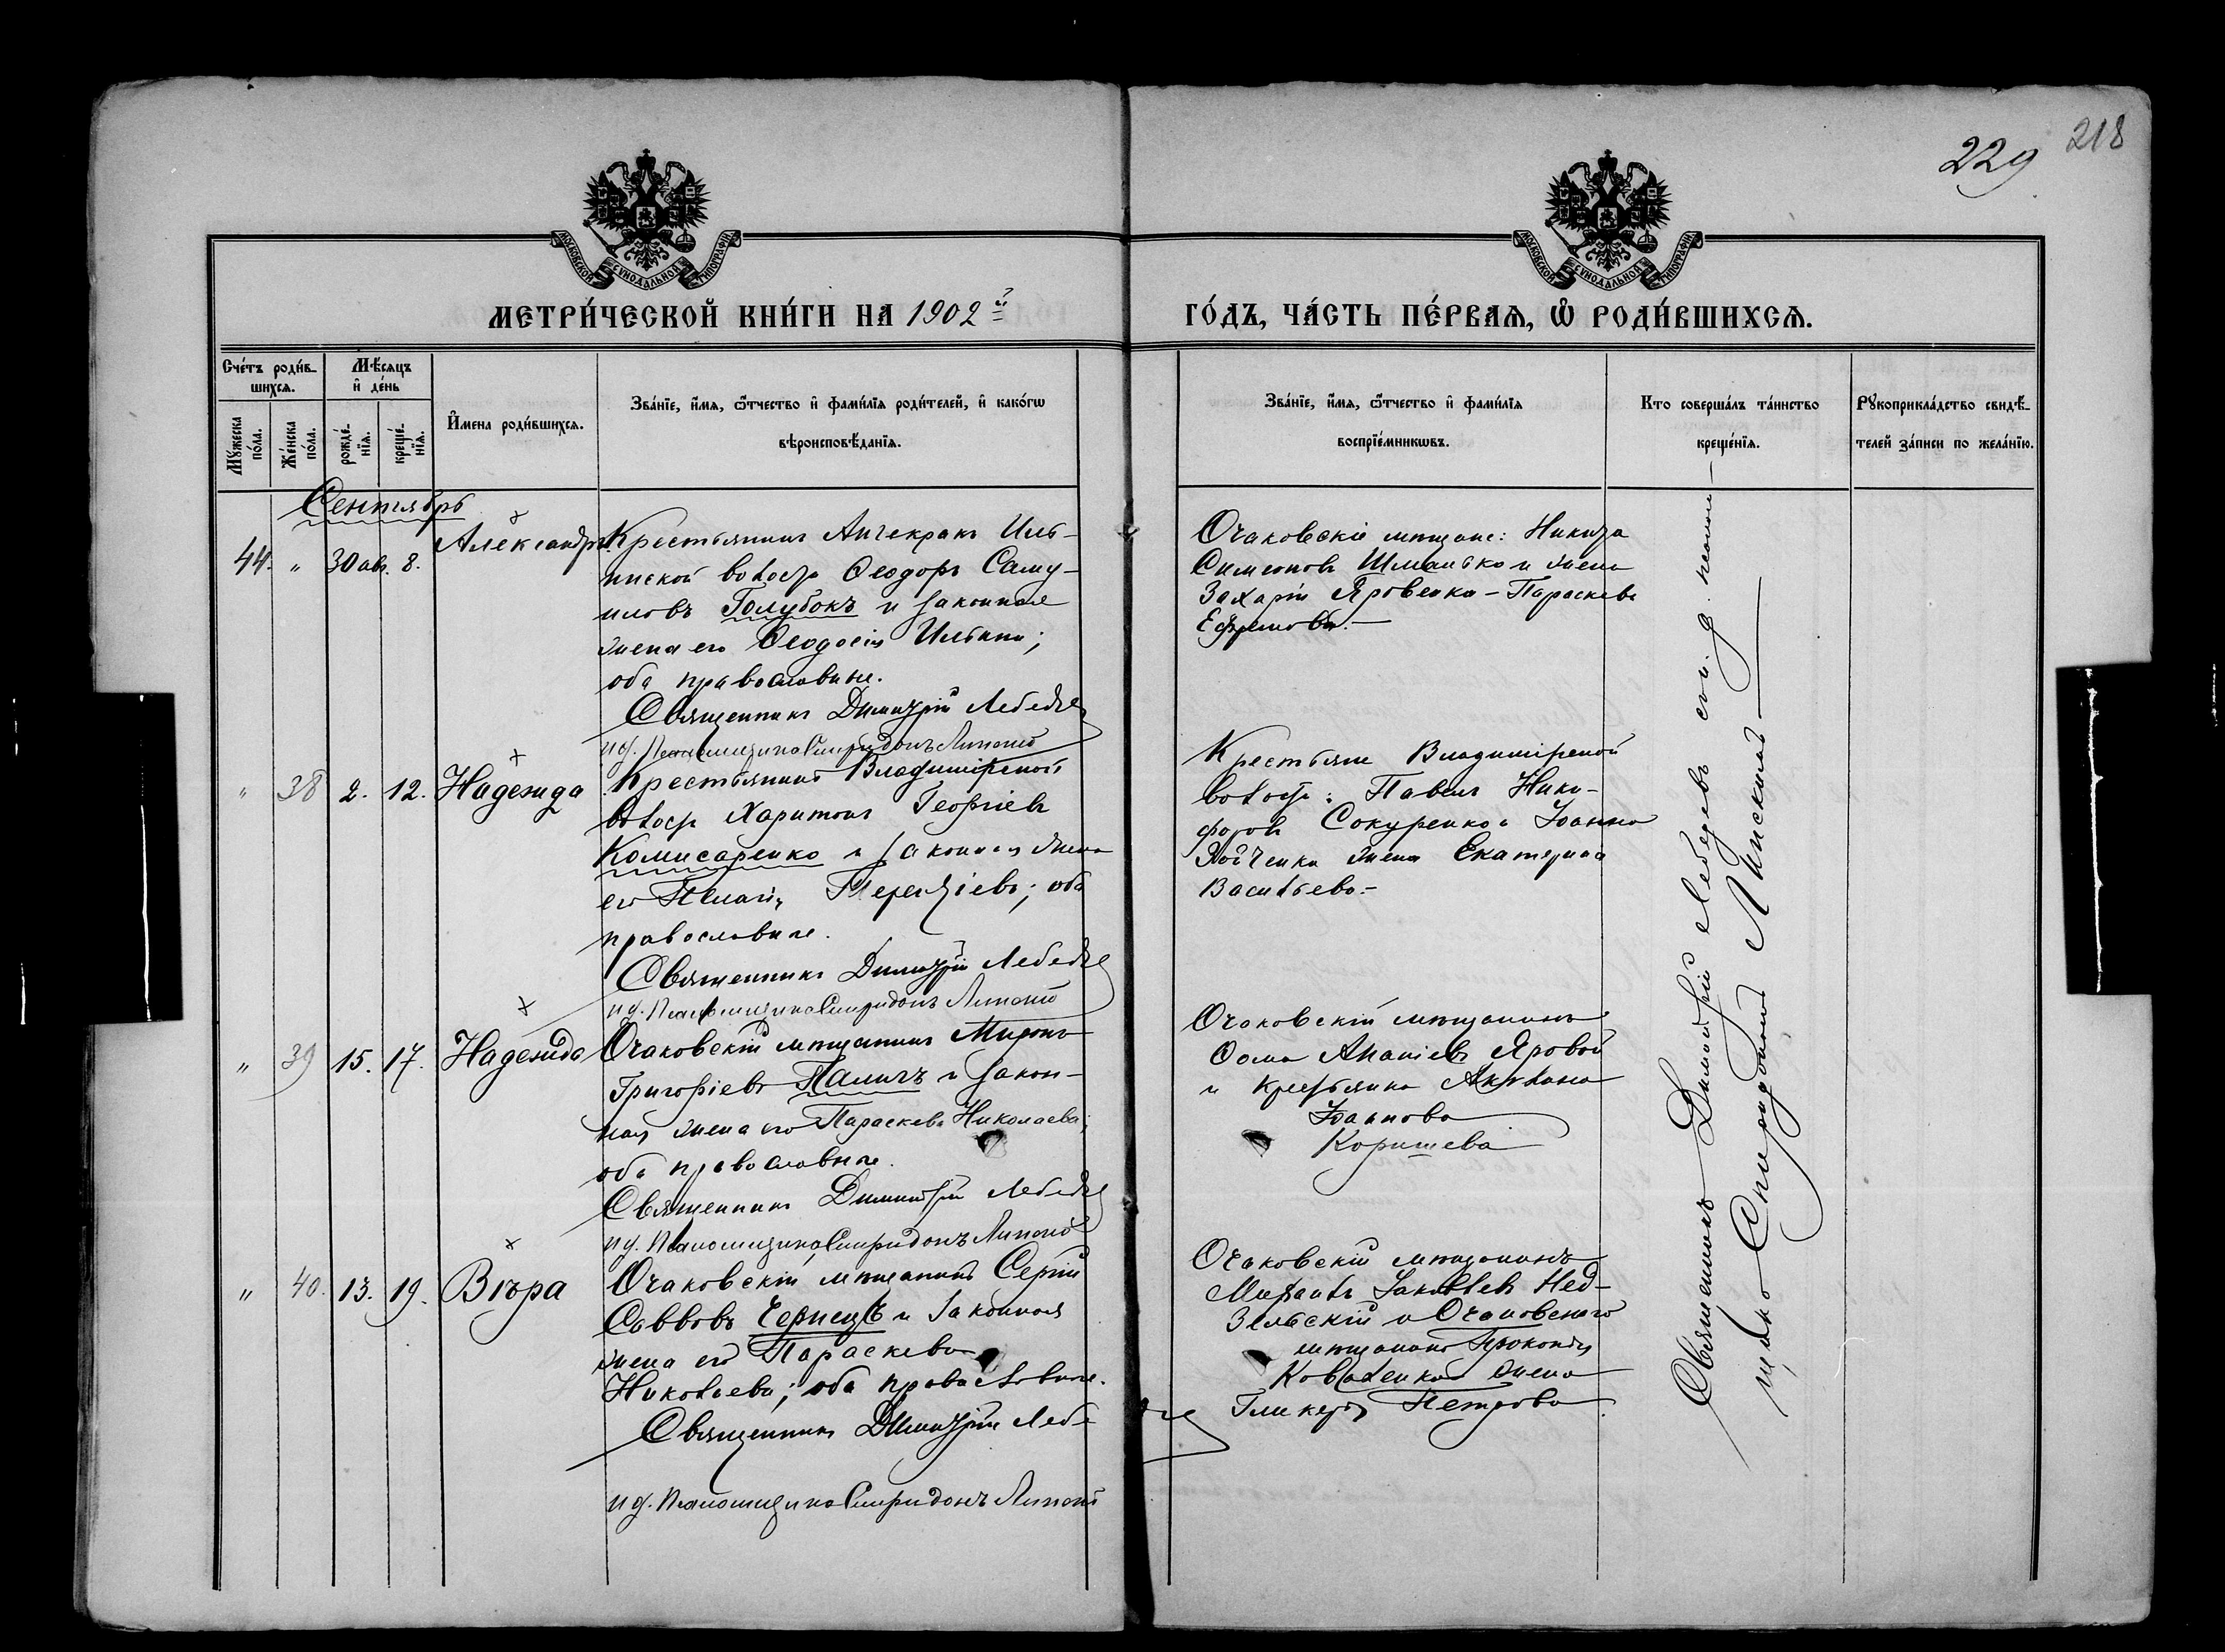 218
229
МОСКОВСКОЙ СѴНОДАЛЬНОЙ ТИПОГРАФІИ
МОСКОВСКОЙ СѴНОДАЛЬНОЙ ТИПОГРАФІИ
МЕТРИ́ЧЕСКОЙ КНИ́ГИ НА 1902й
ГО́ДЪ, ЧА́СТЬ ПЕ́РВАЯ, Ѡ РОДИ́ВШИХСѦ.
Сче́тъ роди́в-
шихсѧ.
Мꙋ́жеска по́ла.
Же́нска по́ла.
Мѣ́сѧцъ
и҆ де́нь
рожде́-
нїѧ.
креще́-
нїѧ.
И҆́мена роди́вшихсѧ.
Зва́нїе, и҆́мѧ, ѻ҆́тчество и҆ фами́лїѧ роди́телей, и҆ како́гѡ
вѣроисповѣ́данїѧ.
Зва́нїе, и҆́мѧ, ѻ҆́тчество и҆ фами́лїѧ
воспрїе́мникѡвъ.
Кто соверша́лъ та́инство
креще́нїѧ.
Рꙋкоприкла́дство свидѣ́-
телей за́писи по жела́нїю.
Сентябрь
44. " 30 ав. 8.
Александръ
Крестьянинъ Анчекрак Иль-
инской волости Ѳеодоръ Саму-
иловъ Голубокъ и законная
жена его Ѳеодосія Ильина;
оба православные.
Священникъ Димитрій Лебедев
ид. Псаломщика Спиридонъ
Очаковскіе мѣщане: Никита
Симеоновъ и жена
Захарія Яровенка - Параскева
Ефремова.
" 38 2. 12.
Надежда
Крестьянинъ Владимірской
волости Харитонъ Георгіевъ
Комисаренко и законная жена
его Пелагія Терентіева; оба
православные.
Священникъ Димитрій Лебедев
ид. Псаломщика Спиридонъ
Крестьяне Владимірской
волости: Павелъ Ники-
форовъ Сокуренко и Іоанна
жена Екатерина
Васильева.
" 39 15. 17.
Надежда
Очаковскій мѣщанинъ Миронъ
Григоріевъ Паличъ и закон-
ная жена его Параскева Николаева;
оба православные.
Священникъ Димитрій Лебедев
ид. Псаломщика Спиридонъ
Очаковскій мѣщанинъ
Ѳома Ананіевъ Яровой
и крестьянка Акилина
Іоаннова
Коришева
" 40. 13. 19.
Вѣра
Очаковскій мѣщанинъ Сергій
Саввовъ Чернецъ и законная
жена его Параскева
Николаева; оба православные.
Священникъ Димитрій Лебедев
ид. Псаломщика Спиридонъ
Очаковскій мѣщанинъ
Яковлевъ Нед-
зельскій и Очаковскаго
мѣщанина Прокопія
Коваленка жена
Гликерія Петрова.
Священникъ Димитрій Лебедевъ
Спиридонъ